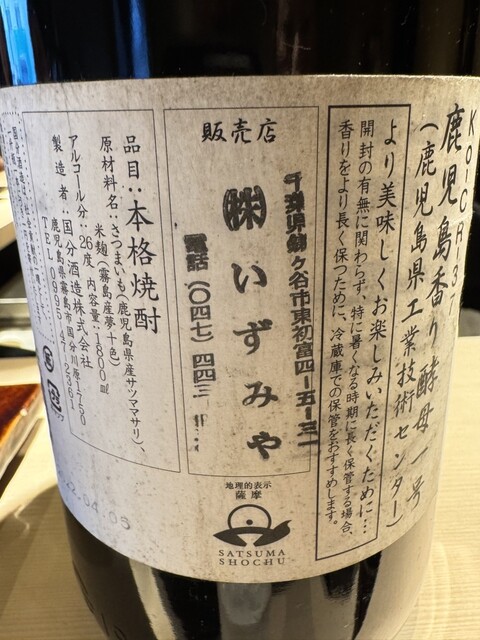 鹿児島香り酵母一号
(鹿児島県工業技術センター)
より美味しくお楽しみいただくために…
開封の有無に関わらず、特に暑くなる時期に長く保管する場合、
香りをより長く保つために、冷蔵庫での保管をおすすめします。
販売店
千葉県鎌ケ谷市東初富四-五-三一
㈱いずみや
電話(〇四七)四四三
地理的表示
薩摩
SATSUMA
SHOCHU
品目:本格焼酎
原材料名:さつまいも(鹿児島県産サツママサリ)、
米麹(霧島産夢十色)
アルコール分:26度 内容量:1800ml
製造者:国分酒造株式会社
鹿児島県霧島市国分川原1750
TEL 0995-47-2361
22.04.05